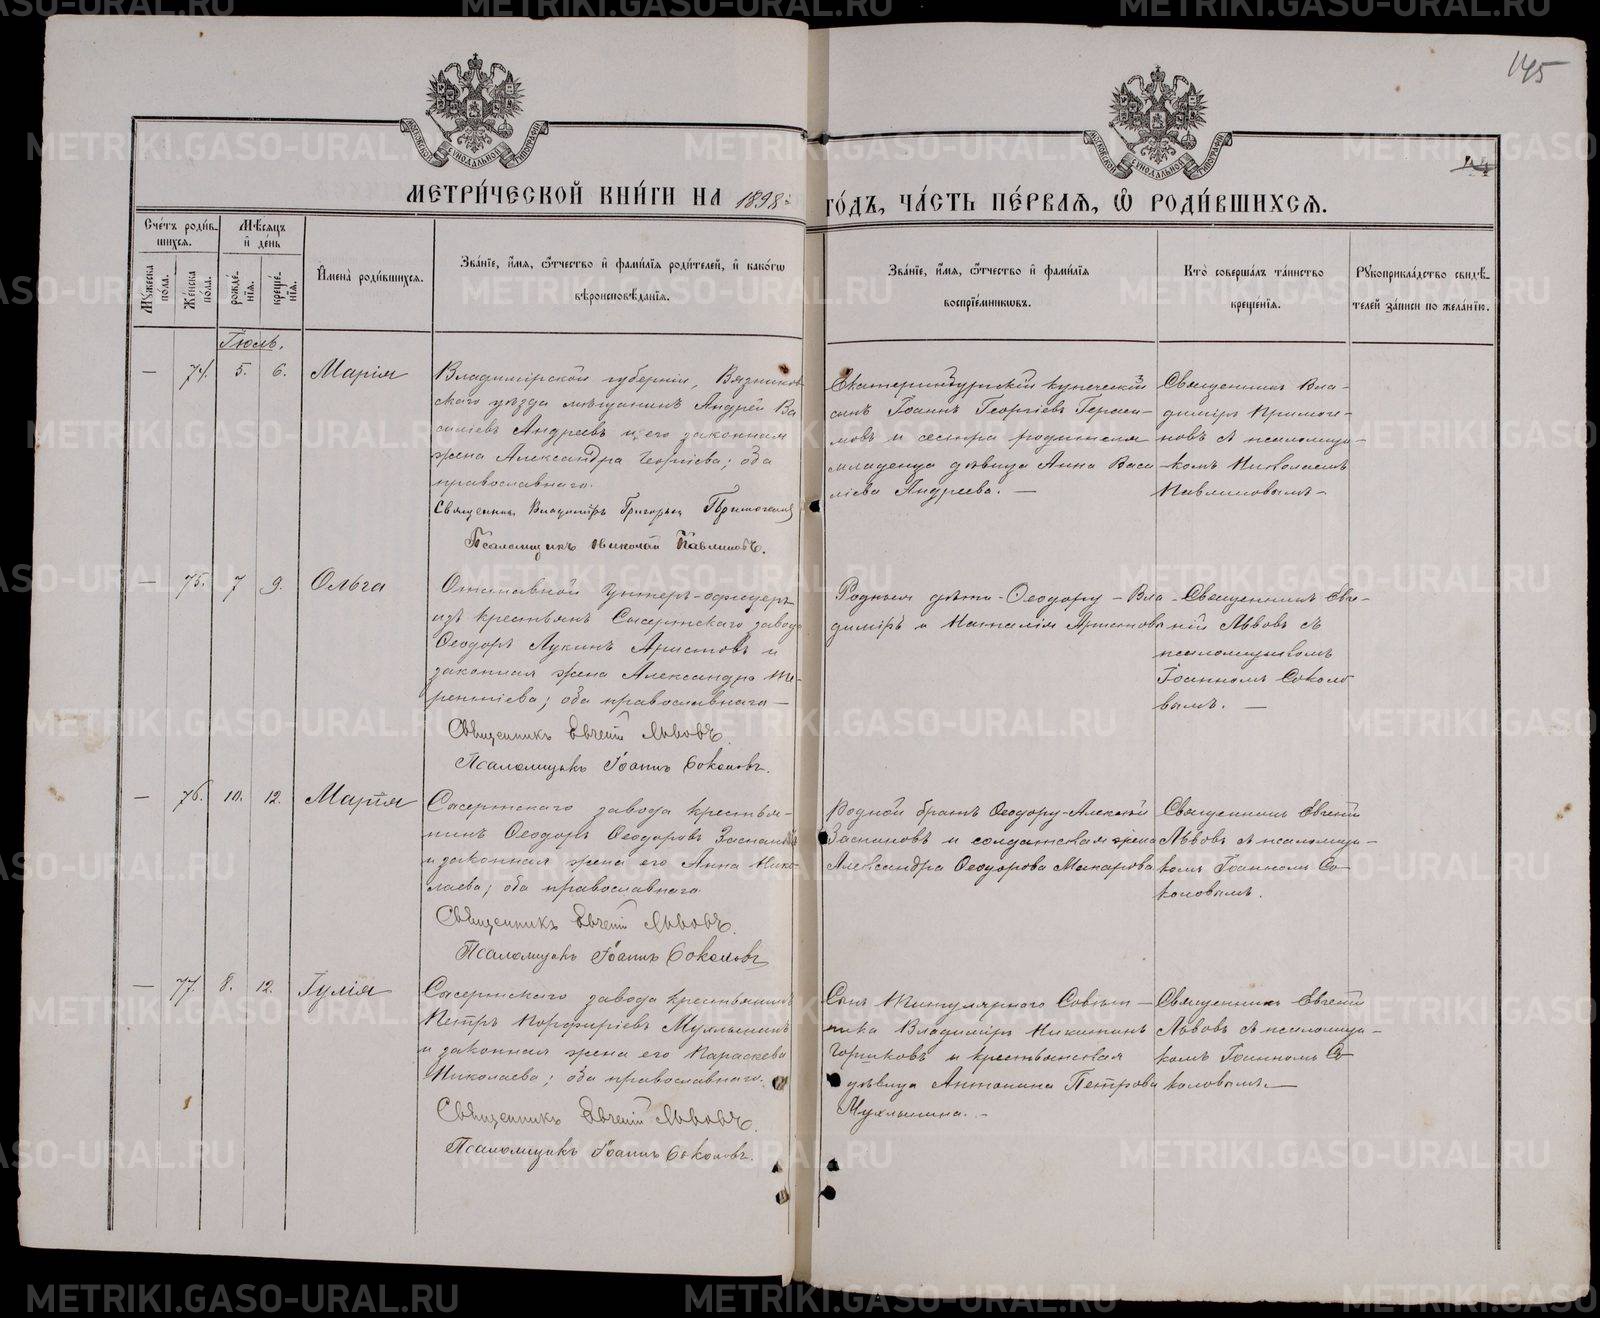 145
МЕТРИ́ЧЕСКОЙ КНИ́ГИ НА 1898 й ГО́ДЪ, ЧА́СТЬ ПЕ́РВАЯ, Ѡ҆ РОДИ́ВШИХСЯ.
Сче́тъ роди́вшихся.
Мѣ́сяцъ и҆ де́нь
Мꙋ́жеска по́ла.
Же́нска по́ла.
рожде́нїя.
креще́нїя.
И҆мена̀ роди́вшихся.
Зва́нїе, и҆́мя, ѻ҆́тчество и҆ фами́лїя роди́телей, и҆ како́гѡ
вѣроисповѣ́данїя.
Зва́нїе, и҆́мя, ѻ҆́тчество и҆ фами́лїя
воспрїе́мникѡвъ.
Кто̀ соверша́лъ та́инство
креще́нїя.
Рꙋкоприкла́дство свидѣ́телей за́писи по жела́нїю.
Іюль.
— 74. 5. 6. Марія
Владимірской губерніи, Вязников-
скаго уѣзда мѣщанинъ Андрей Ва
силіевъ Андреевъ и его законная
жена Александра Георгіева; оба
православнаго.
Священникъ Владиміръ Григорьев Примогеновъ
Псаломщикъ Николай Павлиновъ.
Екатеринбургскій купеческій
сынъ Іоаннъ Георгіевъ Гераси-
мовъ и сестра родителя
младенца дѣвица Анна Васи
ліева Андреева. —
Священникъ Вла-
диміръ Примоге-
новъ съ псаломщи-
комъ Николаемъ
Павлиновымъ —
— 75. 7 9. Ольга
Отставной унтеръ-офицеръ
изъ крестьянъ Сысертскаго завода
Ѳеодоръ Лукинъ Аристовъ и
законная жена Александра Те-
рентіева; оба православнаго —
Священникъ Евгеній Львовъ.
Псаломщикъ Іоаннъ Соколовъ.
Родные дѣти Ѳеодору — Вла-
диміръ и Наталія Аристовы
Священникъ Евге-
ній Львовъ съ
псаломщикомъ
Іоанномъ Соколо
вымъ. —
— 76. 10. 12. Марія
Сысертскаго завода крестья-
нинъ Ѳеодоръ Ѳеодоровъ Заспановъ
и законная жена его Анна Нико-
лаева; оба православнаго
Священникъ Евгеній Львовъ.
Псаломщикъ Іоаннъ Соколовъ
Родной братъ Ѳеодору Алексѣй
Заспановъ и солдатская жена
Александра Ѳеодорова Макарова
Священникъ Евгеній
Львовъ съ псаломщи-
комъ Іоанномъ Со-
коловымъ.
— 77. 8. 12. Іулія
Сысертскаго завода крестьянинъ
Петръ Порфиріевъ Мухлынинъ
и законная жена его Параскева
Николаева; оба православнаго.
Священникъ Евгеній Львовъ.
Псаломщикъ Іоаннъ Соколовъ.
Сынъ Титулярнаго Совѣт-
ника Владиміръ Никитинъ
Горшковъ и крестьянская
дѣвица Антонина Петрова
Мухлынина. —
Священникъ Евгеній
Львовъ съ псаломщи-
комъ Іоанномъ Со-
коловымъ. —
METRIKI.GASO-URAL.RU